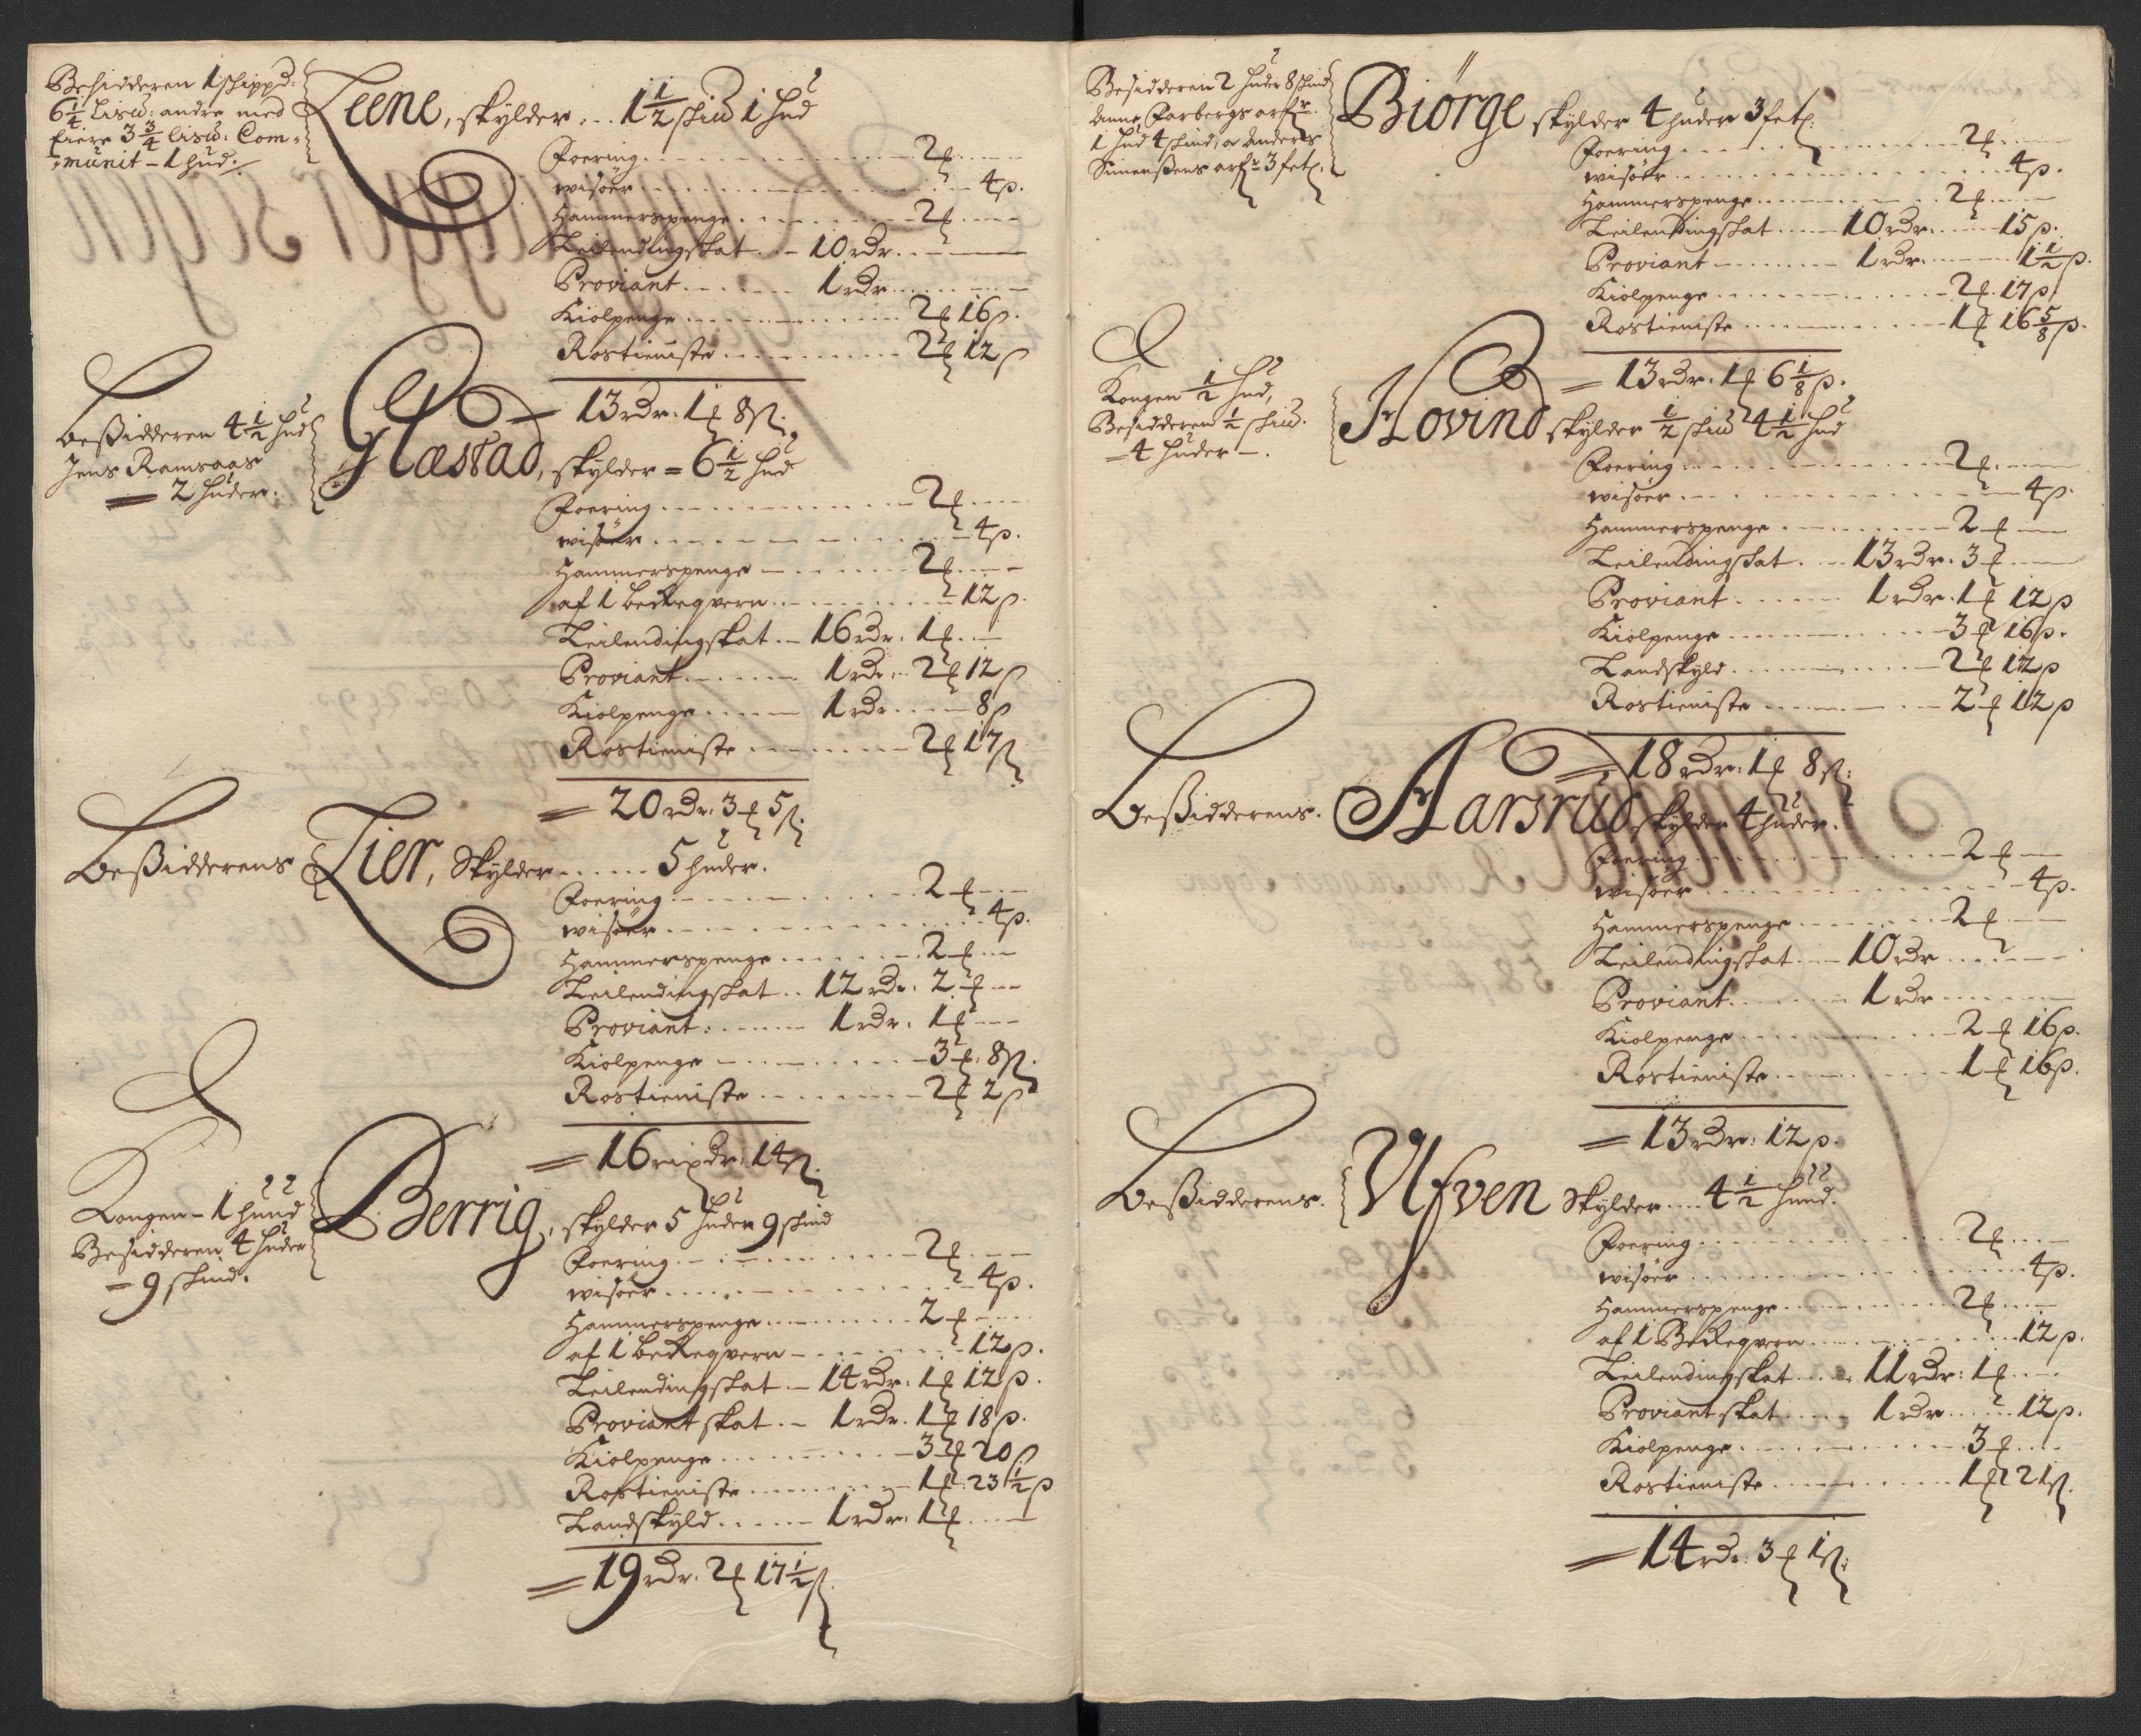 Besidderen 1 shippd:
6 1/4 lisu: andre med
Eiere 3 3/4 lisu: Com=
=munit - 1 hud:
Leene, skylder ... 1 1/2 shiu 1 hud
Foering ... 2 ɬ
wisöer ... 4 β.
Hammerspenge ... 2 ɬ
Leilendingskat ... 10 rdr.
Proviant ... 1 rdr
Kiolpenge ... 2 ɬ 16 β.
Rostieniste ... 2 ɬ 12 β
= 13 rdr. 1 ɬ 8 β.
Beßidderen 4 1/2 hud
Jens Ramsaas
= 2 huder.
Glæstad, skylder = 6 1/2 hud
Foering ... 2 ɬ
wisöer ... 4 β.
Hammerspenge ... 2 ɬ
af 1 beckeqvern ... 12 β.
Leilendingskat ... 16 rdr. 1 ɬ
Proviant ... 1 rdr. 2 ɬ 12 β
Kiolpenge ... 1 rdr. 8 β
Rostieniste ... 2 ɬ 17 β
= 20 rdr. 3 ɬ 5 β.
Beßidderens
Lier, Skylder ... 5 huder.
Foering ... 2 ɬ
wisöer ... 4 β.
Hammerspenge ... 2 ɬ
Leilendingskat ... 12 rdr. 2 ɬ
Proviant ... 1 rdr. 1 ɬ
Kiolpenge ... 3 ɬ. 8 β.
Rostieniste ... 2 ɬ 2 β
= 16 rixdr. 14 β.
Kongen - 1 huud
Besidderen 4 huder
- 9 skind.
Berrig, skylder 5 huder 9 skind
Foering ... 2 ɬ
wisöer ... 4 β.
Hammerspenge ... 2 ɬ
af 1 beckeqvern ... 12 β.
Leilendingskat ... 14 rdr. 1 ɬ 12 β.
Proviantskat ... 1 rdr. 1 ɬ 18 β.
Kiolpenge ... 3 ɬ 20 β
Rostieniste ... 1 ɬ. 23 1/2 β
Landskyld ... 1 rdr. 1 ɬ
= 19 rdr. 2 ɬ 17 1/2 β.
Besidderen 2 huder 8 skind
Anne Farbergs arf:
1 hud 4 skind, a Anders
Simenßens arf: 3 fetl.
Biörge skylder 4 huder 3 fetl.
Foering ... 2 ɬ
wisöer ... 4 β.
Hammerspenge ... 2 ɬ
Leilendingskat ... 10 rdr. 15 β.
Proviant ... 1 rdr. 1 1/2 β.
Kiolpenge ... 2 ɬ. 17 β
Rostieniste ... 1 ɬ 16 5/8 β.
= 13 rdr. 1 ɬ 6 1/8 β.
Kongen 1/2 hud,
Besidderen 1/2 shiu.
= 4 huder -.
Hovind skylder 1/2 shiu 4 1/2 hud
Foering ... 2 ɬ
wisöer ... 4 β.
Hammerspenge ... 2 ɬ
Leilendingskat ... 13 rdr. 3 ɬ
Proviant ... 1 rdr. 1 ɬ 12 β
Kiolpenge ... 3 ɬ 16 β.
Landskyld ... 2 ɬ 12 β
Rostieniste ... 2 ɬ 12 β
= 18 rdr. 1 ɬ 8 β.
Beßidderens.
Aarsrud skylder 4 huder.
Foering ... 2 ɬ
wisöer ... 4 β.
Hammerspenge ... 2 ɬ
Leilendingskat ... 10 rdr
Proviant ... 1 rdr
Kiolpenge ... 2 ɬ 16 β.
Rostieniste ... 1 ɬ 16 β.
= 13 rdr. 12 β.
Beßidderens.
Ufven Skylder ... 4 1/2 huud.
Foering ... 2 ɬ
wisöer ... 4 β.
Hammerspenge ... 2 ɬ
af 1 Beckeqvern ... 12 β.
Leilendingskat ... 11 rdr: 1 ɬ
Proviantskat ... 1 rdr ... 12 β.
Kiolpenge ... 3 ɬ
Rostieniste ... 1 ɬ 21 β.
= 14 rdr. 3 ɬ 1 β.